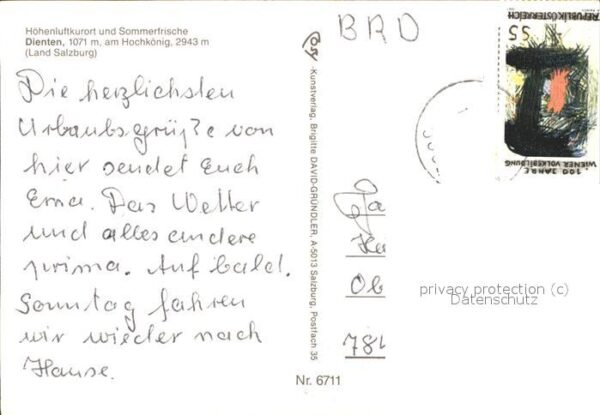 Höhenluftkurort und Sommerfrische
Dienten, 1071 m, am Hochkönig, 2943 m
(Land Salzburg)
Die herzlichsten
Urlaubsgrüße von
hier sendet Euch
Erna. Das Wetter
und alles andere
prima. Auf bald.
Sonntag fahren
wir wieder nach
Hause.
Kunstverlag, Brigitte DAVID-GRÜNDLER, A-5013 Salzburg, Postfach 35
Nr. 6711
BRD
REPUBLIK ÖSTERREICH
S5
100 JAHRE
WIENER VOLKSBILDUNG
Ob
privacy protection (c)
Datenschutz